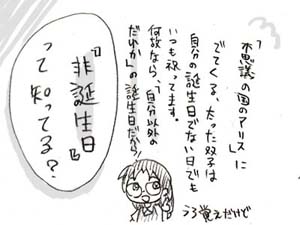 「不思議の国のアリス」に
でてくる、たった双子は
自分の誕生日でない日でも
いつも祝ってます。
何故なら、「自分以外の
だれか」の誕生日だから!
うろ覚えだけど
『非誕生日』
って知ってる?